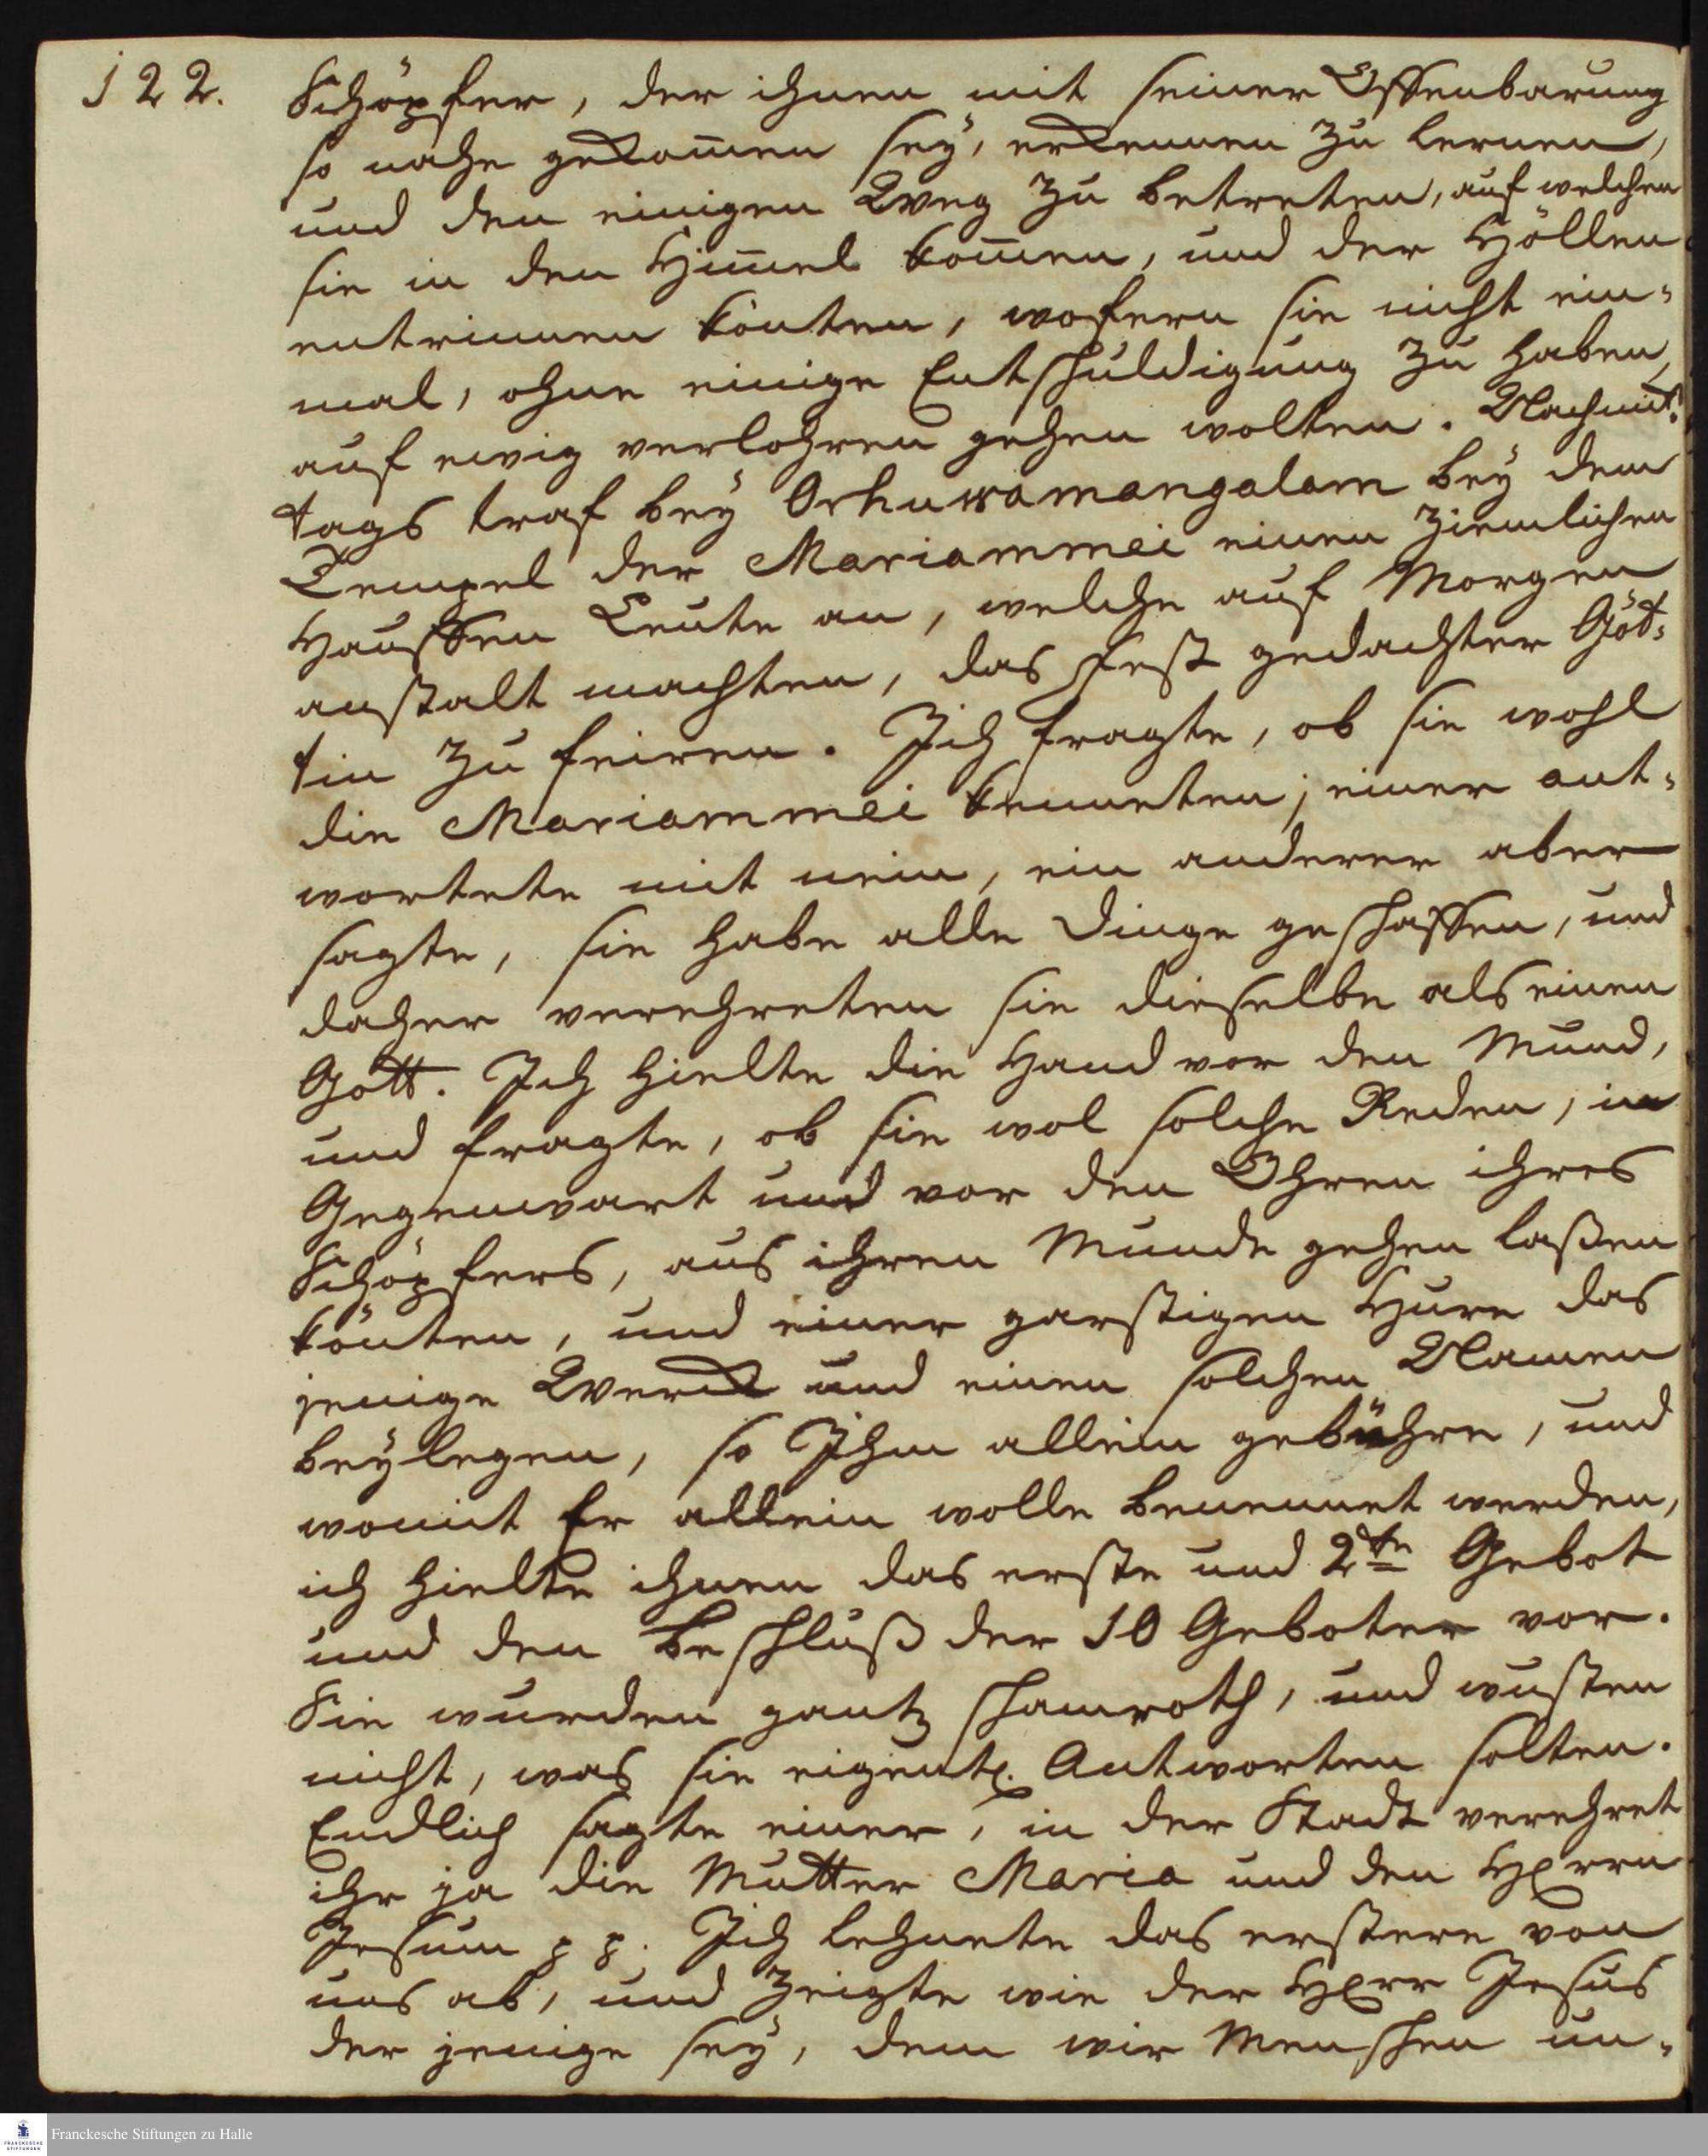 122.
Schöpfer, der ihnen mit seiner Offenbarung
so nahe gekom̄en seÿ, erkennen zu lernen,
und den einigen Weg zu betreten, auf welchen
sie in den Him̄el kom̄en, und der Höllen
entrinnen könten, wofern sie nicht ein-
mal, ohne einige Entschuldigung zu haben,
auf ewig verlohren gehen wolten. Nachmit-
tags traf beÿ Orhuwamangalam beÿ dem
Tempel der Mariammei einen ziemlichen
Hauffen Leute an, welche auf Morgen
anstalt machten, das Fest gedachter Göt-
tin zu feiren. Ich fragte, ob sie wohl
die Mariammei kenneten; einer ant-
wortete mit nein, ein anderer aber
sagte, sie habe alle Dinge geschaffen, und
daher verehreten sie dieselbe als einen
Gott. Ich hielte die Hand vor den Mund,
und fragte, ob sie wol solche Reden, in
Gegenwart und vor den Ohren ihres
Schöpfers, aus ihren Munde gehen laßen
könten, und einer garstigen Hure das
jenige Werck und einen solchen Namen
beÿlegen, so Ihm allein gebühre, und
womit Er allein wolle benennet werden,
ich hielte ihnen das erste und 2te Gebot
und den Beschluß der 10 Geboten vor.
Sie wurden gantz schamroth, und wusten
nicht, was sie eigentl. Antworten solten.
Endlich sagte einer, in der Stadt verehret
ihr ja die Mutter Maria und den HErrn
Jesum pp. Ich lehnete das erstere von
uns ab, und zeigte wie der HErr Jesus
der jenige seÿ, dem wir Menschen un-
Franckesche Stiftungen zu Halle
FRANCKESCHE STIFTUNGEN